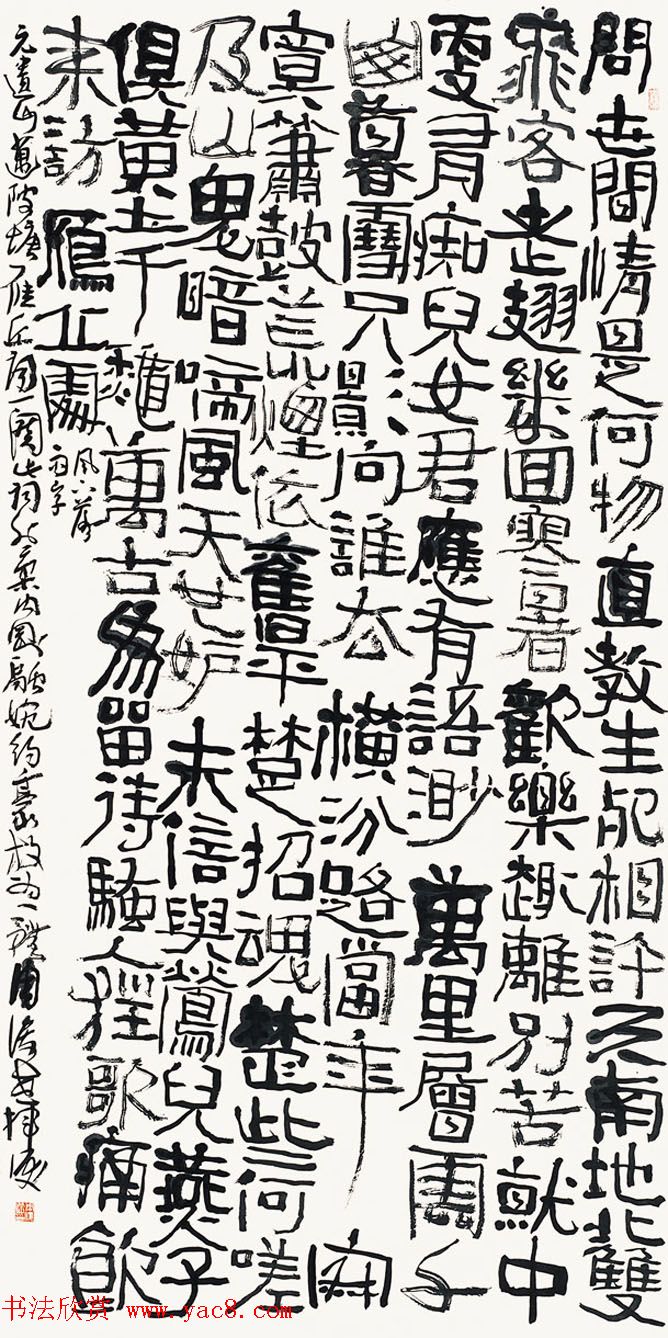 問世間情是何物直教生死相許天南地北雙
飛客老翅幾回寒暑歡樂趣離別苦就中
更有痴兒女君應有語渺萬里層雲千
山暮雪只影向誰去橫汾路當年寂
寞簫鼓荒煙依舊平楚招魂楚些何嗟
及山鬼暗啼風天也妒未信與鶯兒燕子
俱黃土千秋萬古為留待騷人狂歌痛飲
來訪雁丘處
風下落
雨字
元遺山邁陂塘雁丘詞一闋此詞融婉約豪放為一體
书法欣赏 www.yac8.com